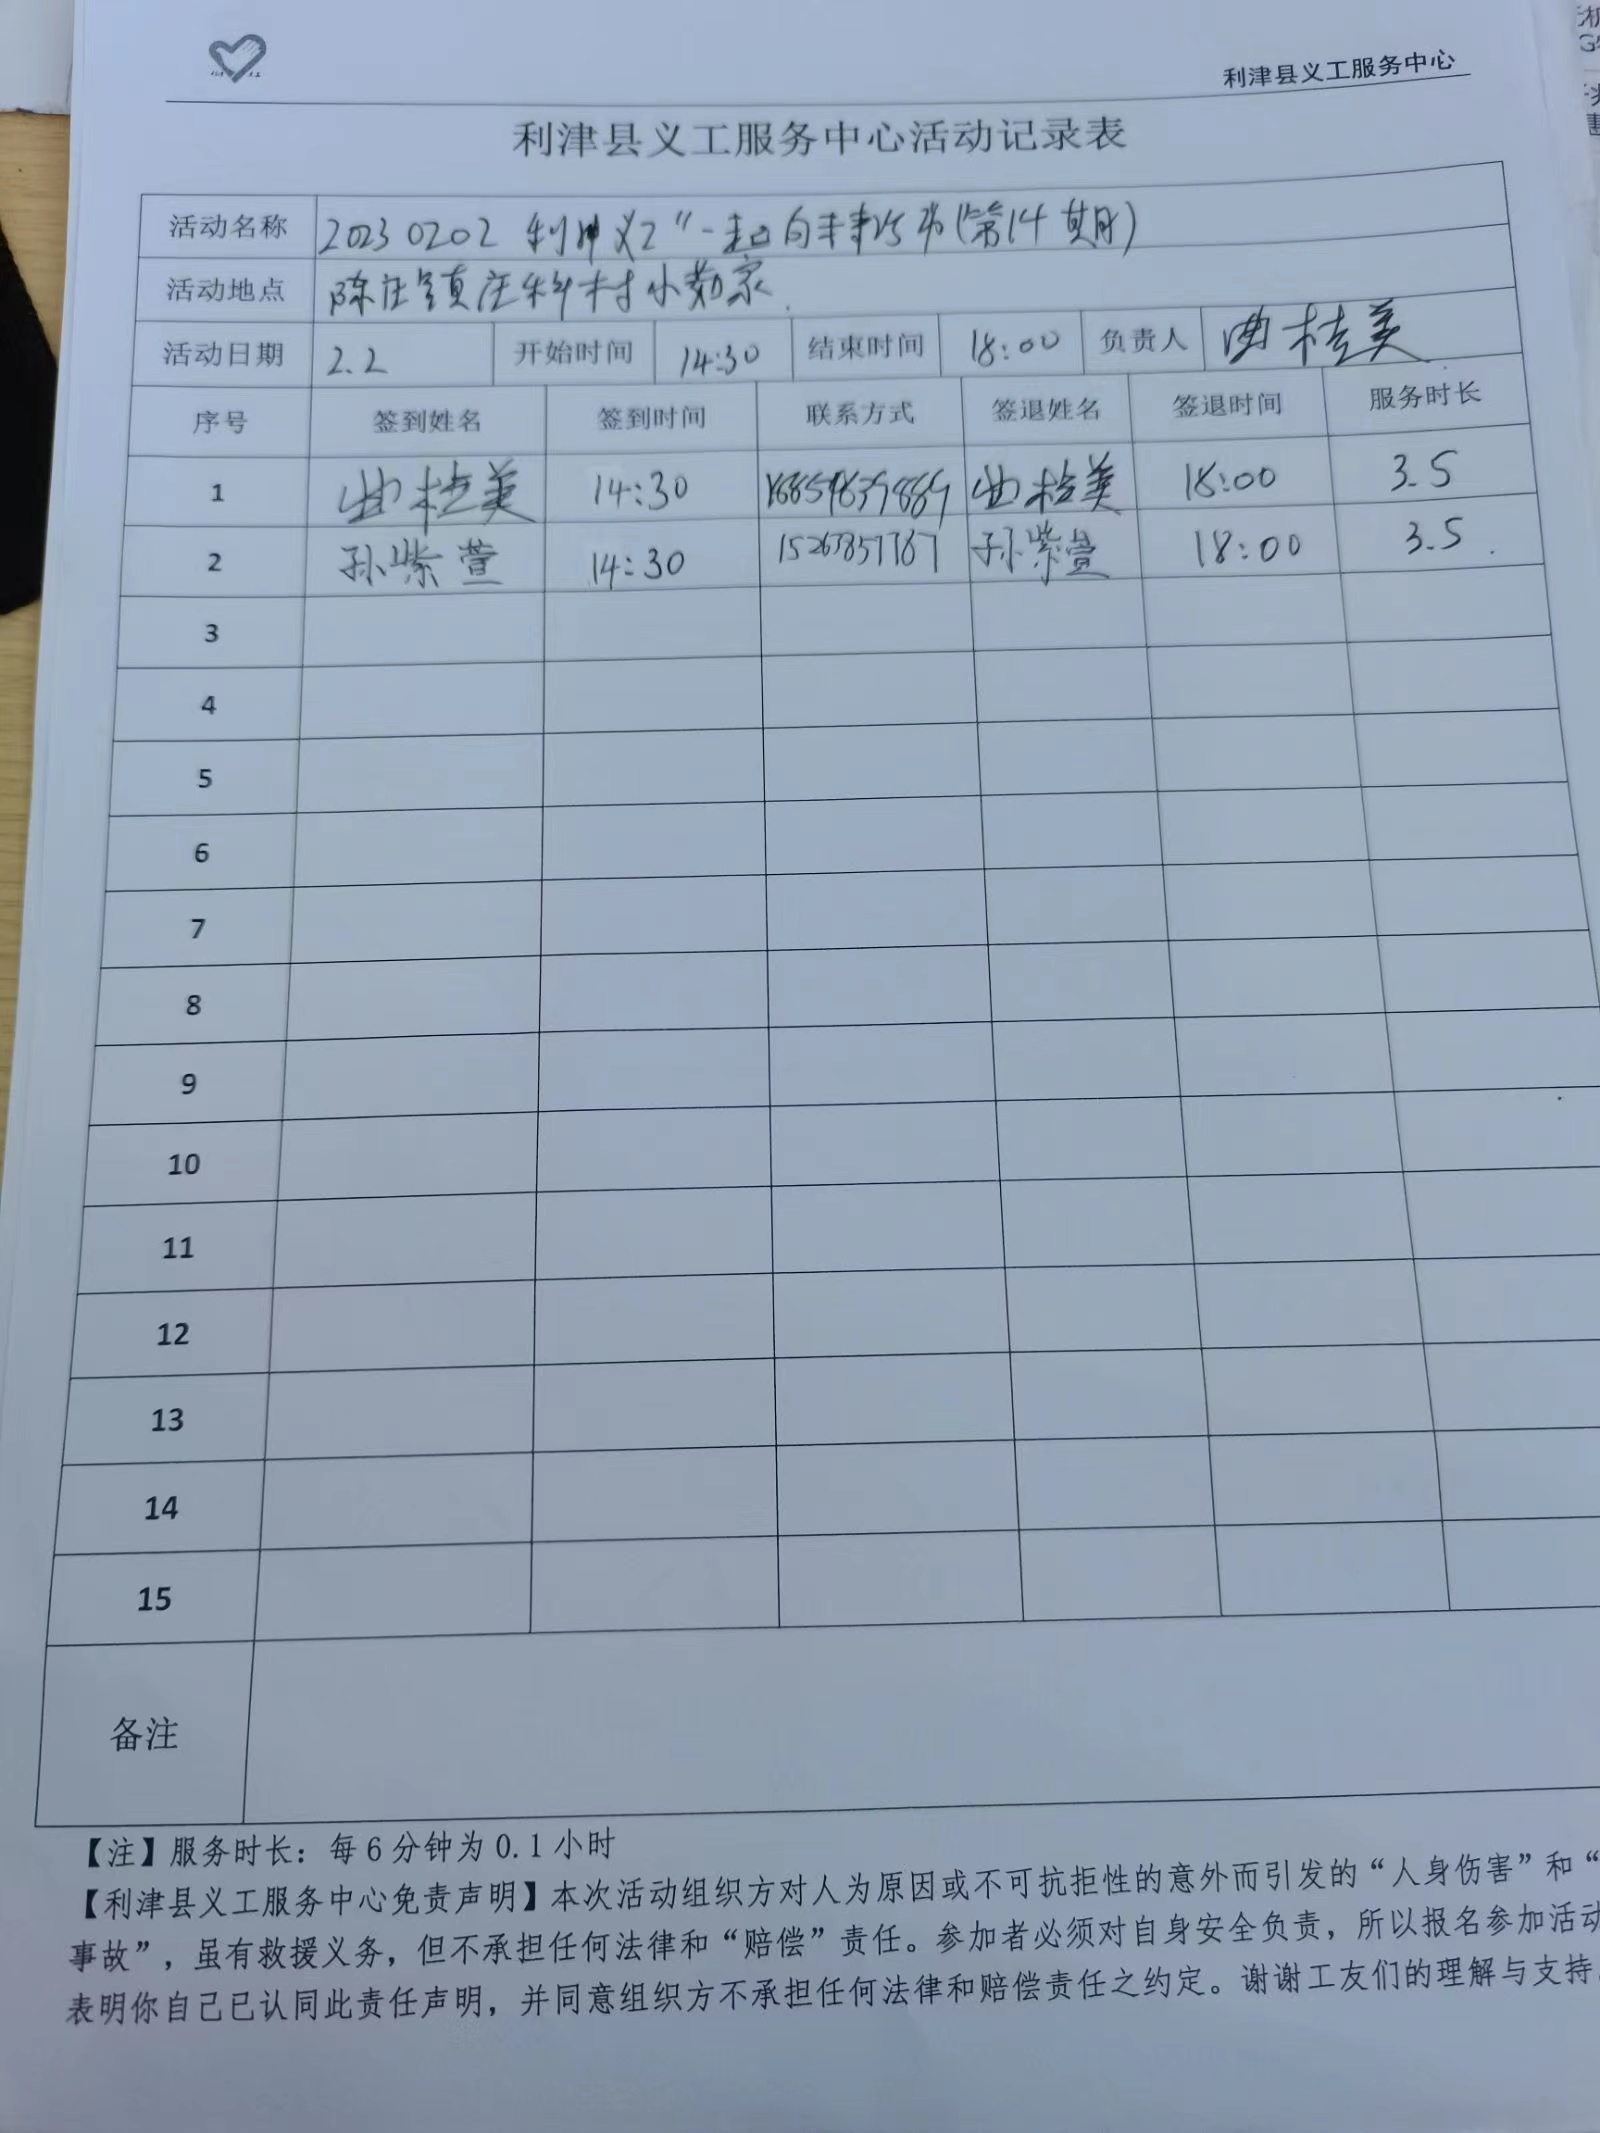 利津县义工服务中心
利津县义工服务中心活动记录表
活动名称 20230202 利津义工"一起向未来(第14期)
活动地点 陈庄镇庄科村小勃家
活动日期 2.2 开始时间 14:30 结束时间 18:00 负责人 曲桂美
序号 签到姓名 签到时间 联系方式 签退姓名 签退时间 服务时长
1 曲桂美 14:30 曲桂美 18:00 3.5
2 孙紫萱 14:30 孙紫萱 18:00 3.5
3
4
5
6
7
8
9
10
11
12
13
14
15
备注
【注】服务时长：每6分钟为0.1小时
【利津县义工服务中心免责声明】本次活动组织方对人为原因或不可抗拒性的意外而引发的“人身伤害”和“
事故”，虽有救援义务，但不承担任何法律和“赔偿”责任。参加者必须对自身安全负责，所以报名参加活动
表明你自己已认同此责任声明，并同意组织方不承担任何法律和赔偿责任之约定。谢谢工友们的理解与支持